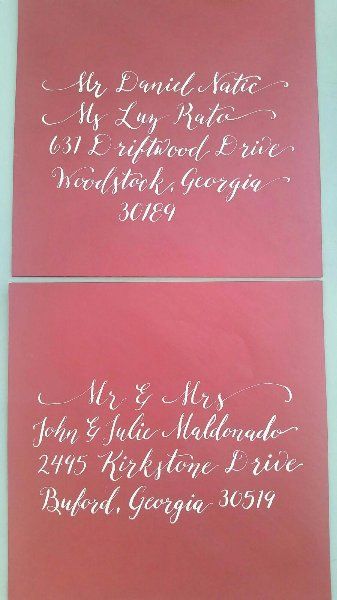 Mr Daniel Natic
Ms Luz Rato
631 Driftwood Drive
Woodstock, Georgia
30189
Mr & Mrs
John & Julie Maldonado
2495 Kirkstone Drive
Buford, Georgia 30519